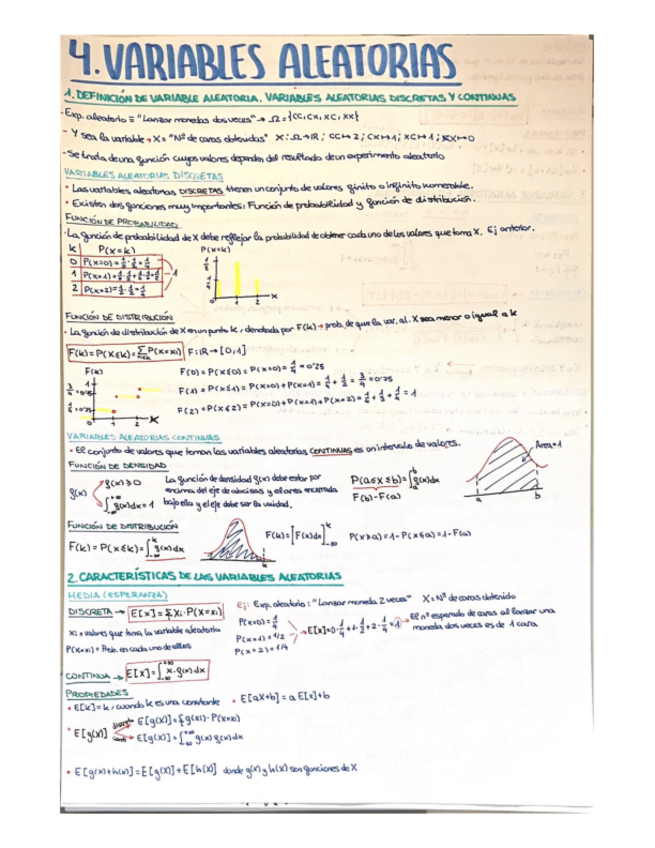 4. VARIABLES ALEATORIAS
1. DEFINICIÓN DE VARIABLE ALEATORIA. VARIABLES ALEATORIAS DISCRETAS Y CONTINUAS
- Exp. aleatorio ≡ "Lanzar monedas dos veces" → Ω = {CC, CX, XC, XX}
- Y sea la variable → X = "Nº de caras obtenidas" X: Ω→IR; CC↦2; CX↦1; XC↦1; XX↦0
- Se trata de una función cuyos valores dependen del resultado de un experimento aleatorio
VARIABLES ALEATORIAS DISCRETAS
• Las variables aleatorias DISCRETAS tienen un conjunto de valores finito o infinito numerable.
• Existen dos funciones muy importantes: Función de probabilidad y función de distribución.
FUNCIÓN DE PROBABILIDAD
· La función de probabilidad de X debe reflejar la probabilidad de obtener cada uno de los valores que toma X. Ej anterior.
K P(X=K)
0 P(X=0)=1/2·1/2=1/4
1 P(X=1)=1/2·1/2+1/2·1/2=1/2
2 P(X=2)=1/2·1/2=1/4
1
P(X=K)
0 1 2 X
FUNCIÓN DE DISTRIBUCIÓN
- La función de distribución de X en un punto K, denotada por F(K) → prob. de que la var. al. X sea menor o igual a K
F(K)=P(X≤K)=Σ P(X=xi) F: IR → [0,1]
F(K)
3/4=0'75
1/4=0'25
1 2 K
F(0)=P(X≤0)=P(X=0)=1/4=0'25
F(1)=P(X≤1)=P(X=0)+P(X=1)=1/4+1/2=3/4=0'75
F(2)=P(X≤2)=P(X=0)+P(X=1)+P(X=2)=1/4+1/2+1/4=1
VARIABLES ALEATORIAS CONTINUAS
• El conjunto de valores que toman las variables aleatorias CONTINUAS es un intervalo de valores.
FUNCIÓN DE DENSIDAD
f(x) f(x)≥0
∫-∞+∞ f(x)dx=1
La función de densidad f(x) debe estar por
encima del eje de abcisas y el area encerrada
bajo ella y el eje debe ser la unidad.
P(a≤X≤b)=∫ab f(x)dx
F(b)-F(a)
Area=1
a b
FUNCIÓN DE DISTRIBUCIÓN
F(K)=P(X≤K)=∫-∞K f(x)dx
K
F(K)=[F(x)dx]-∞K P(X>a)=1-P(X≤a)=1-F(a)
2. CARACTERÍSTICAS DE LAS VARIABLES ALEATORIAS
MEDIA (ESPERANZA)
DISCRETA → E[X]=Σ Xi·P(X=xi)
Xi = valores que toma la variable aleatoria
P(X=xi)= Prob. en cada uno de ellos
Ej: Exp. aleatorio: "Lanzar moneda 2 veces" X=Nº de caras obtenido
P(X=0)=1/4
P(X=1)=1/2
P(X=2)=1/4
E[X]=0·1/4+1·1/2+2·1/4=1 → El nº esperado de caras al lanzar una
moneda dos veces es de 1 cara
CONTINUA → E[X]=∫-∞+∞ x·f(x)dx
PROPIEDADES
• E[K]=K, cuando K es una constante • E[aX+b]=a E[X]+b
• E[g(X)] discreta E[g(X)]=Σ g(xi)·P(X=xi)
cont. E[g(X)]=∫-∞+∞ g(x) f(x)dx
• E[g(X)+h(X)]=E[g(X)]+E[h(X)] donde g(X) y h(X) son funciones de X